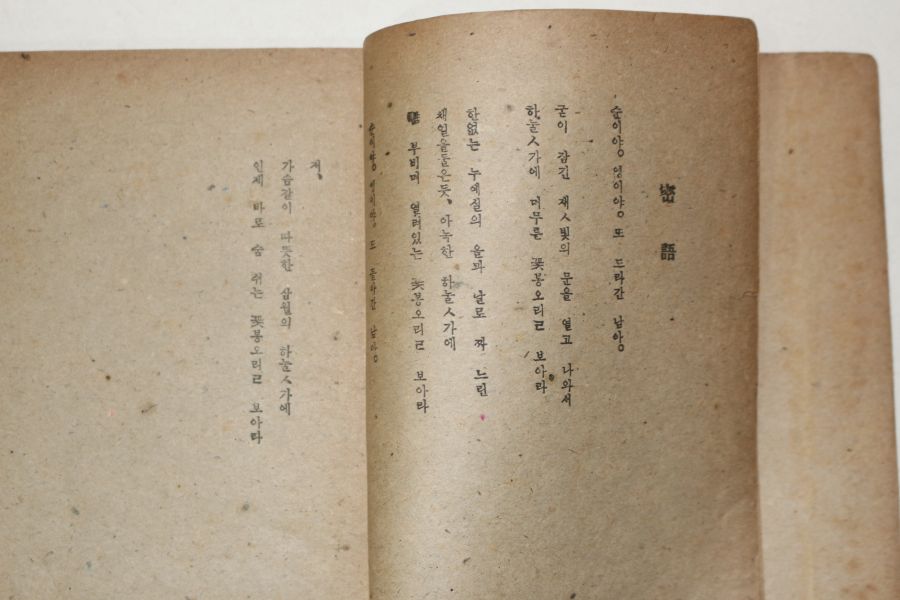 密語
순이양 영이양 또 도라간 남양
굳이 감긴 재ㅅ빛의 문을 열고 나와서
하눌ㅅ가에 머무른 꽃봉오리ㄹ 보아라
한없는 누에실의 올과 날로 짜 느린
채일을둘은듯, 아눅한 하눌ㅅ가에
뺨 부비며 열려있는 꽃봉오리ㄹ 보아라
순이양 영이양 또 도라간 남양
저,
가슴같이 따뜻한 삼월의 하눌ㅅ가에
인제 바로 숨 쉬는 꽃봉오리ㄹ 보아라